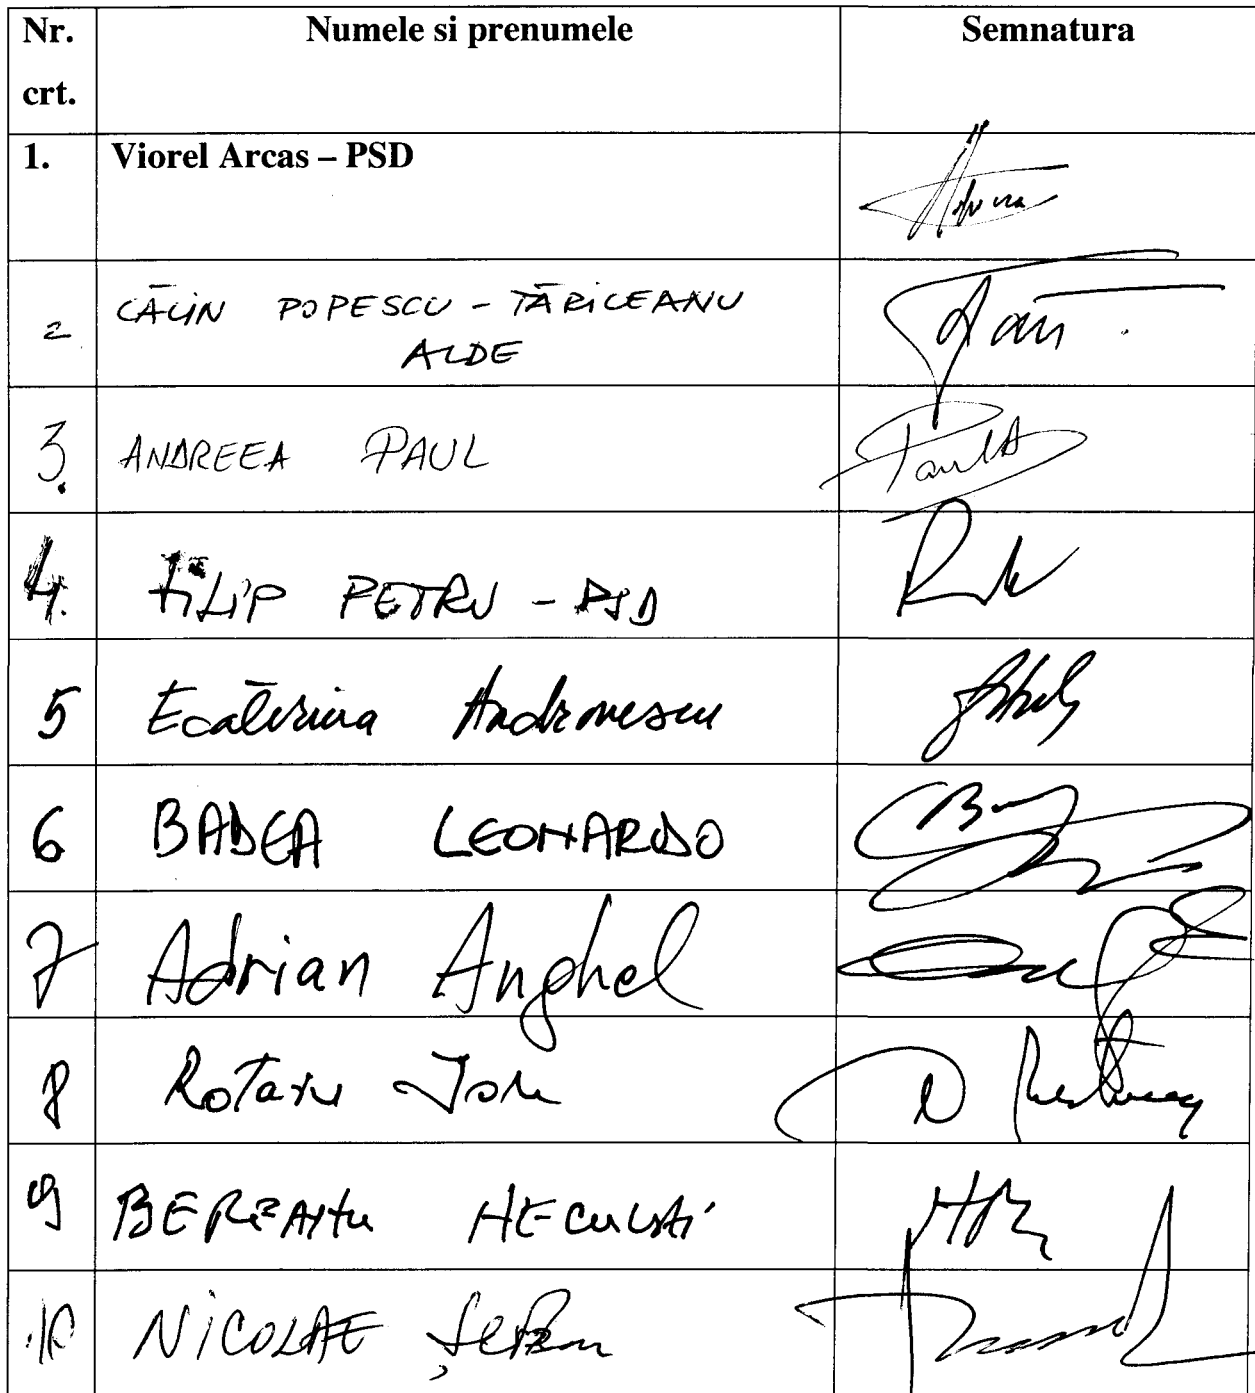 Nr. crt. Numele si prenumele Semnatura
1. Viorel Arcas – PSD
2 CĂLIN POPESCU - TĂRICEANU
ALDE
3. ANDREEA PAUL
4. FILIP PETRU - PSD
5 Ecaterina Andronescu
6 BADEA LEONARDO
7 Adrian Anghel
8 Rotaru Ion
9 BEREANU
10 NICOLAE Șerban